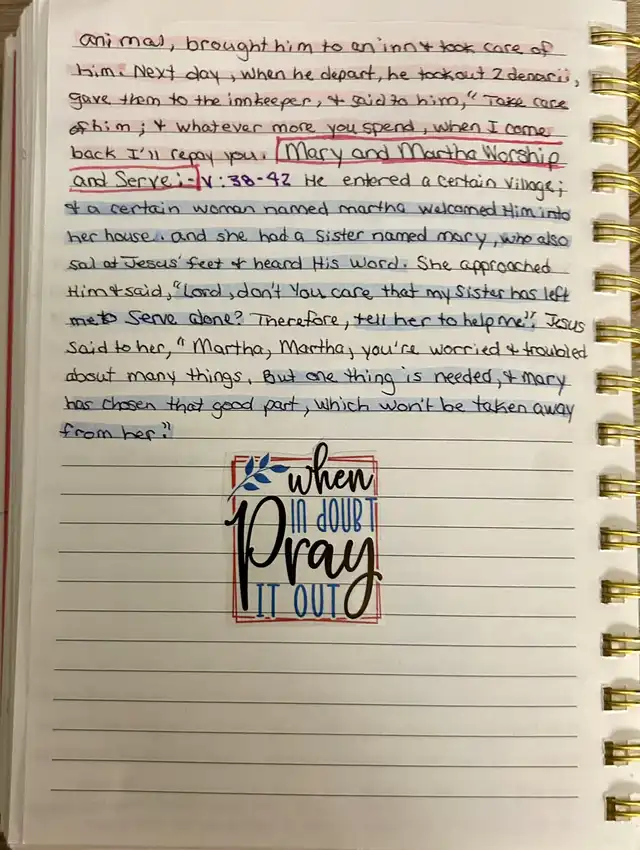 animal, brought him to an inn & took care of
him. Next day, when he depart, he took out 2 denarii,
gave them to the innkeeper, & said to him, "Take care
of him; & whatever more you spend, when I come
back I'll repay you. Mary and Martha Worship
and Serve;- V: 38-42 He entered a certain village;
& a certain woman named martha welcomed Him into
her house. and she had a sister named mary, who also
sat at Jesus' feet & heard His word. She approached
Him & said, "Lord, don't You care that my sister has left
me to serve alone? Therefore, tell her to help me". Jesus
said to her, "Martha, Martha, you're worried & troubled
about many things. But one thing is needed, & mary
has chosen that good part, which won't be taken away
from her."
when
IN dOUBT
Pray
IT OUT